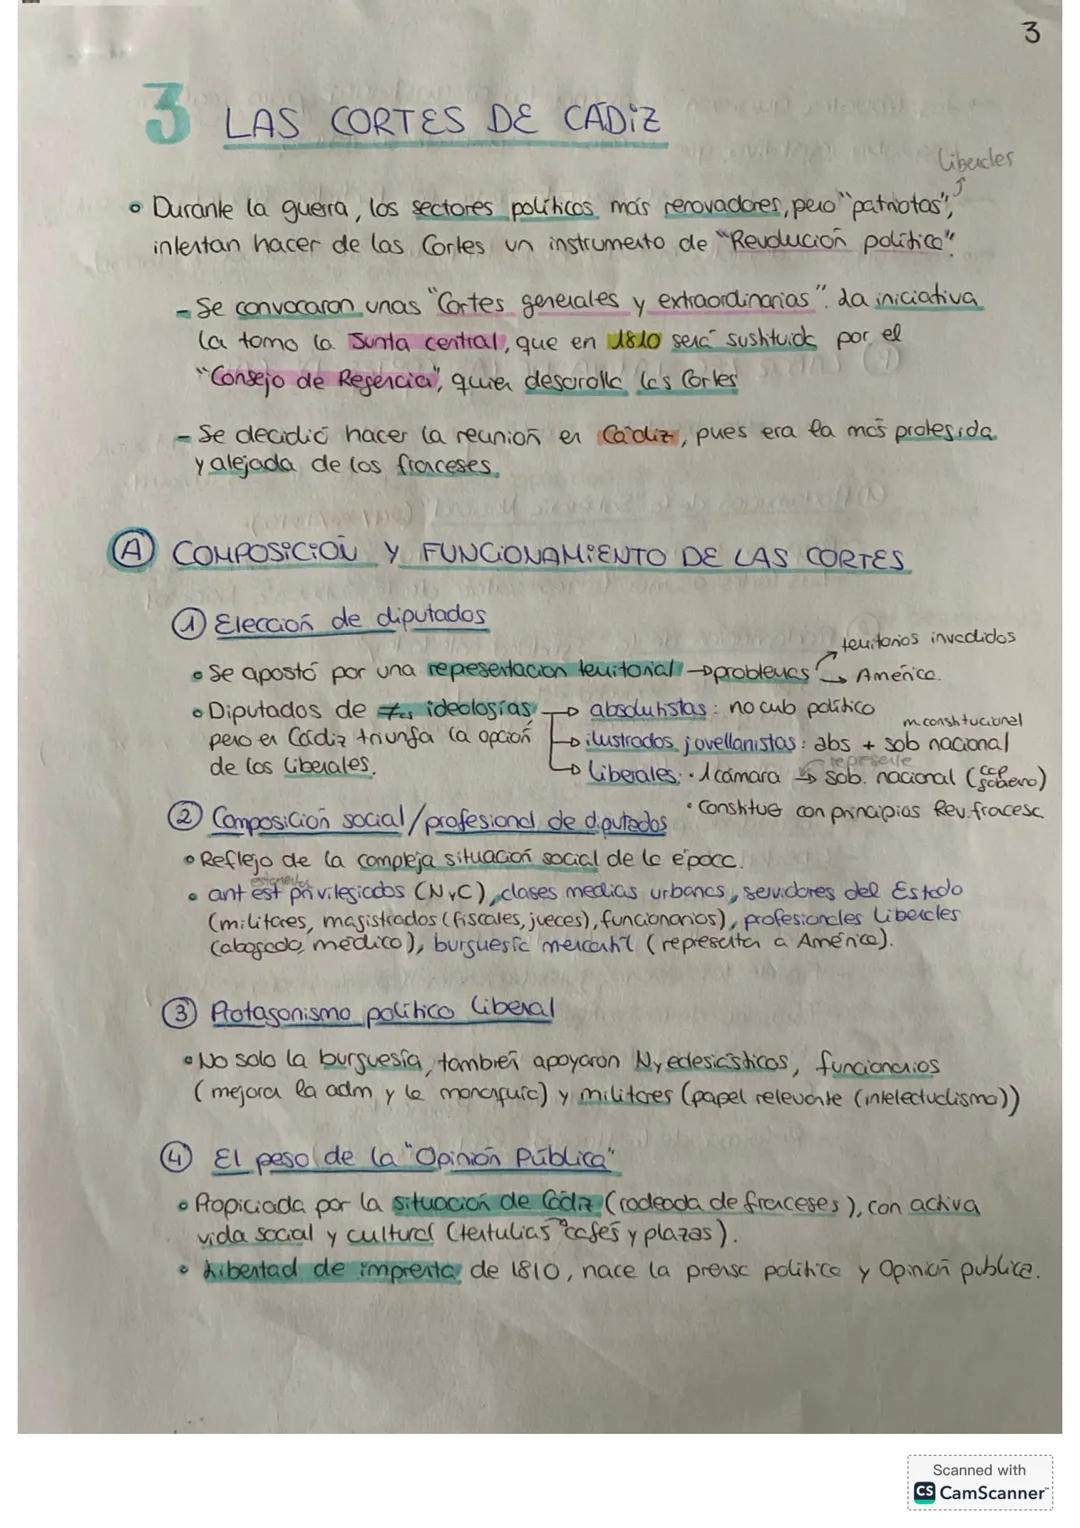 3
3 LAS CORTES DE CÁDIZ
liberales
• Durante la guerra, los sectores políticos más renovadores, pero "patriotas",
intentan hacer de las Cortes un instrumento de "Revolución política".
- Se convocaron unas "Cortes generales y extraordinarias". La iniciativa
la tomo la Junta central, que en 1810 será sustituida por el
"Consejo de Regencia", quien desarolla las Cortes
- Se decidió hacer la reunión en Cádiz, pues era la más protegida
y alejada de los franceses.
A COMPOSICIÓN Y FUNCIONAMIENTO DE LAS CORTES
1 Elección de diputados
territorios invadidos
• Se apostó por una representacion territorial → problemas → América.
• Diputados de ≠es ideologías → absolutistas: no cub político
m. constitucional
pero en Cádiz triunfa la opción → ilustrados jovellanistas: abs + sob nacional
represente
de los liberales. → liberales: • 1 cámara → sob. nacional (CCP soberano)
• Constitue con principios Rev. francesa
2 Composición social/profesional de diputados
• Reflejo de la compleja situación social de la época.
estamentos
• ant est privilegiados (N y C), clases medias urbanas, servidores del Estado
(militares, magistrados (fiscales, jueces), funcionarios), profesionales liberales
(abogado, médico), burguesía mercantil (representan a América).
3 Protagonismo político liberal
• No solo la burguesía, también apoyaron N y eclesiásticos, funcionarios
(mejorar la adm y la monarquía) y militares (papel relevante (intelectualismo))
4 El peso de la "Opinión Pública"
• Propiciada por la situación de Cádiz (rodeada de franceses), con activa
vida social y cultural (tertulias cafés y plazas).
• Libertad de imprenta de 1810, nace la prensa política y Opinión publica.
Scanned with
CS CamScanner